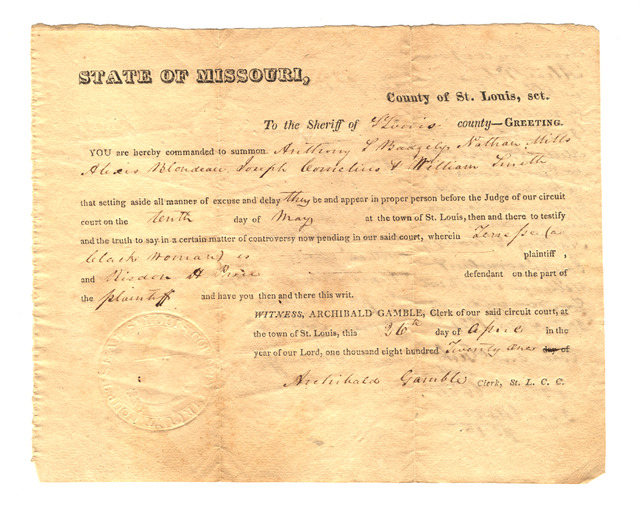 STATE OF MISSOURI,
County of St. Louis, sct.
To the Sheriff of St Louis county—GREETING.
YOU are hereby commanded to summon Anthony S Badgely, Nathan Mills
Alexis Blondeau, Joseph Cornelius & William Smith
that setting aside all manner of excuse and delay they be and appear in proper person before the Judge of our circuit
court on the tenth day of May at the town of St. Louis, then and there to testify
and the truth to say in a certain matter of controversy now pending in our said court, wherein (a
black woman) is plaintiff,
and Risdon H Price defendant on the part of
the plaintiff and have you then and there this writ.
WITNESS, ARCHIBALD GAMBLE, Clerk of our said circuit court, at
the town of St. Louis, this 26th day of April in the
year of our Lord, one thousand eight hundred Twenty one day of
Archibald Gamble Clerk, St. L. C. C.